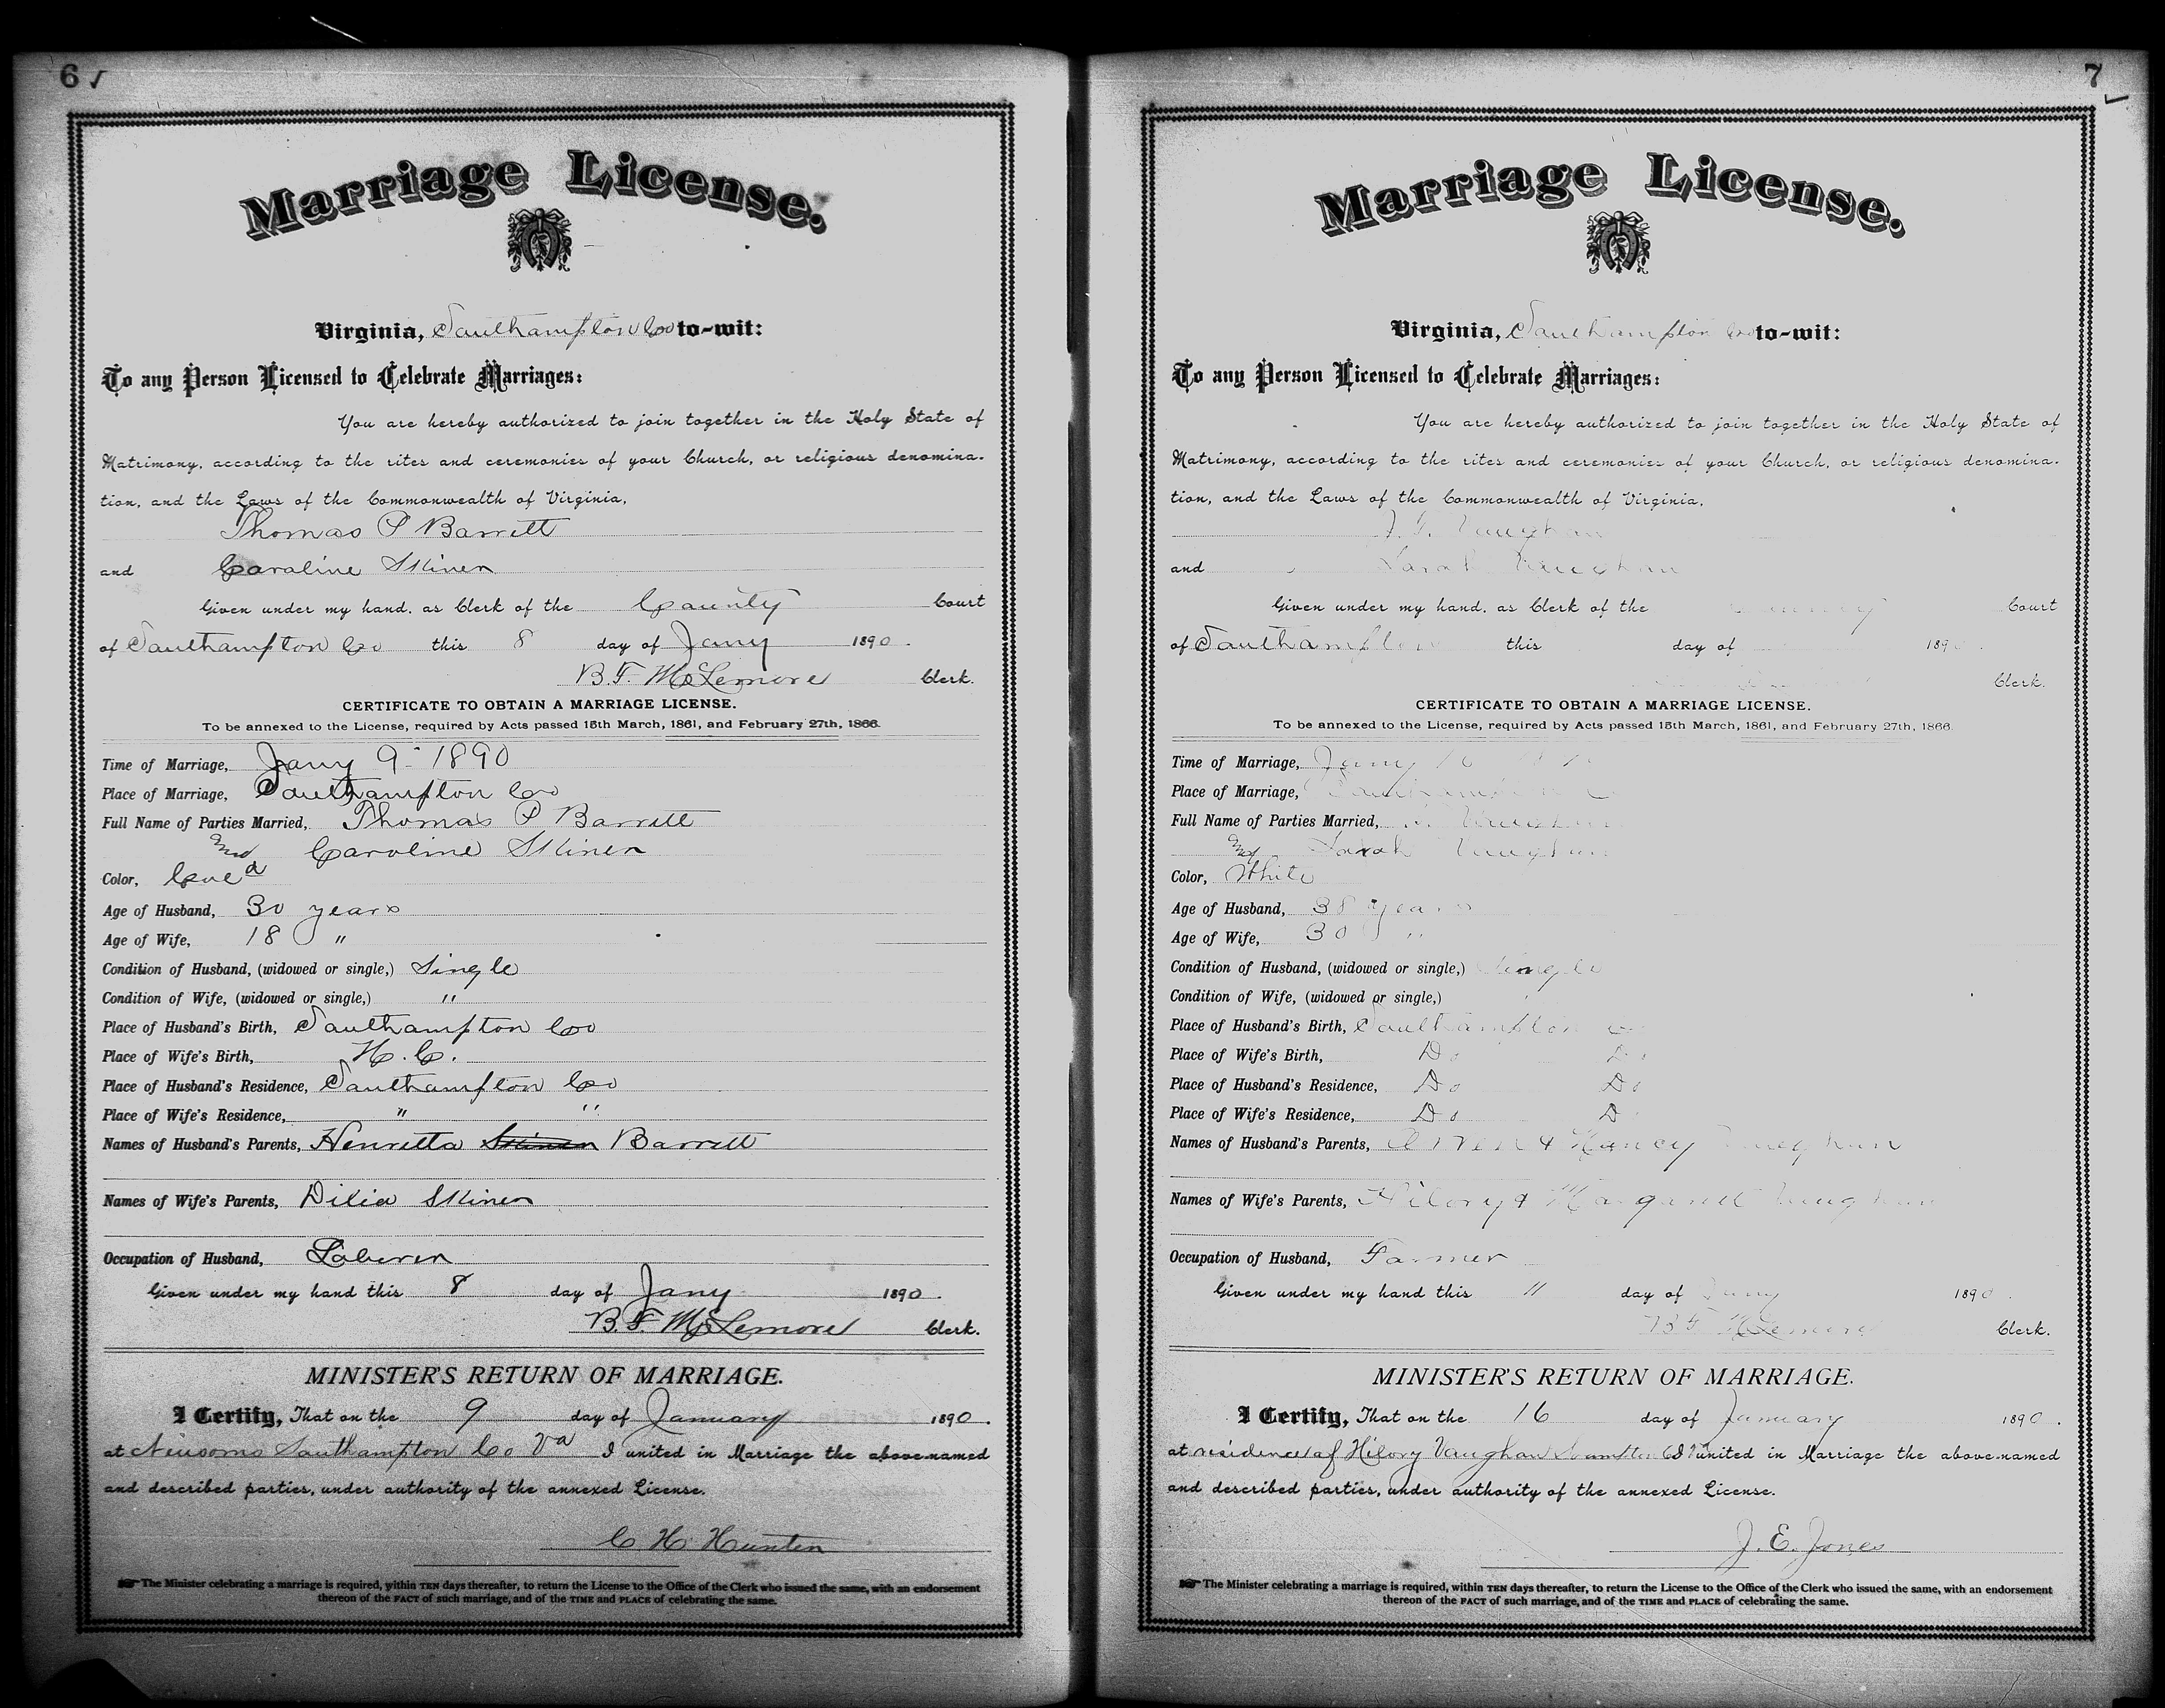 6 ✓
Marriage License.
Virginia, Southampton Co to-wit:
To any Person Licensed to Celebrate Marriages:
You are hereby authorized to join together in the Holy State of
Matrimony, according to the rites and ceremonies of your Church, or religious denomina-
tion, and the Laws of the Commonwealth of Virginia,
Thomas P Barrett
and Caroline Skiner
Given under my hand, as Clerk of the County Court
of Southampton Co this 8 day of Jany 1890.
B. F. McLemore Clerk.
CERTIFICATE TO OBTAIN A MARRIAGE LICENSE.
To be annexed to the License, required by Acts passed 15th March, 1861, and February 27th, 1866.
Time of Marriage, Jany 9 - 1890
Place of Marriage, Southampton Co
Full Name of Parties Married, Thomas P Barrett
And Caroline Skiner
Color, Cold
Age of Husband, 30 years
Age of Wife, 18 "
Condition of Husband, (widowed or single,) Single
Condition of Wife, (widowed or single,) "
Place of Husband's Birth, Southampton Co
Place of Wife's Birth, N. C.
Place of Husband's Residence, Southampton Co
Place of Wife's Residence, " "
Names of Husband's Parents, Henretta Skiner Barrett
Names of Wife's Parents, Skiner
Occupation of Husband, Laborer
Given under my hand this 8 day of Jany 1890.
B. F. McLemore Clerk.
MINISTER'S RETURN OF MARRIAGE.
I Certify, That on the 9 day of January 1890.
at Newsoms Southampton Co Va I united in Marriage the above-named
and described parties, under authority of the annexed License.
C H Hunter
The Minister celebrating a marriage is required, within TEN days thereafter, to return the License to the Office of the Clerk who issued the same, with an endorsement
thereon of the FACT of such marriage, and of the TIME and PLACE of celebrating the same.
7 ✓
Marriage License.
Virginia, Southampton Co to-wit:
To any Person Licensed to Celebrate Marriages:
You are hereby authorized to join together in the Holy State of
Matrimony, according to the rites and ceremonies of your Church, or religious denomina-
tion, and the Laws of the Commonwealth of Virginia,
Vaughan
and Sarah Vaughan
Given under my hand, as Clerk of the County Court
of Southampton this day of 1890
Clerk.
CERTIFICATE TO OBTAIN A MARRIAGE LICENSE.
To be annexed to the License, required by Acts passed 15th March, 1861, and February 27th, 1866.
Time of Marriage, Jany 16 1890
Place of Marriage, Southampton Co
Full Name of Parties Married, Vaughan
And Sarah Vaughan
Color, White
Age of Husband, 38 years
Age of Wife, 30 "
Condition of Husband, (widowed or single,) Single
Condition of Wife, (widowed or single,)
Place of Husband's Birth, Southampton Co
Place of Wife's Birth, Do Do
Place of Husband's Residence, Do Do
Place of Wife's Residence, Do Do
Names of Husband's Parents, & Nancy Vaughan
Names of Wife's Parents, Hilory & Margarett Vaughan
Occupation of Husband, Farmer
Given under my hand this 11 day of Jany 1890.
B F McLemore Clerk.
MINISTER'S RETURN OF MARRIAGE.
I Certify, That on the 16 day of January 1890.
at residence of Hilory Vaughan I united in Marriage the above-named
and described parties, under authority of the annexed License.
J. E. Jones
The Minister celebrating a marriage is required, within TEN days thereafter, to return the License to the Office of the Clerk who issued the same, with an endorsement
thereon of the FACT of such marriage, and of the TIME and PLACE of celebrating the same.